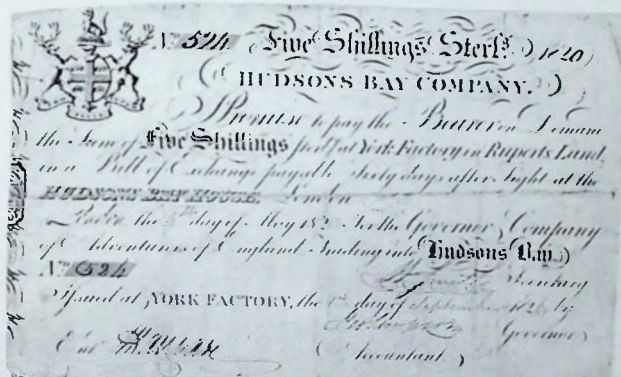 No. 524. Five Shillings Sterlg. 1820
HUDSONS BAY COMPANY.
I Promise to pay the Bearer on Demand
the Sum of Five Shillings Sterlg. at York Factory in Ruperts Land,
in a Bill of Exchange payable Sixty Days after Sight at the
HUDSONS BAY HOUSE, London
London the day of May 18 For the Governor & Company
of Adventurers of England Trading into Hudsons Bay
No. 524 Secretary
Issued at YORK FACTORY, the 1st day of September by
Governor
Entd. Accountant